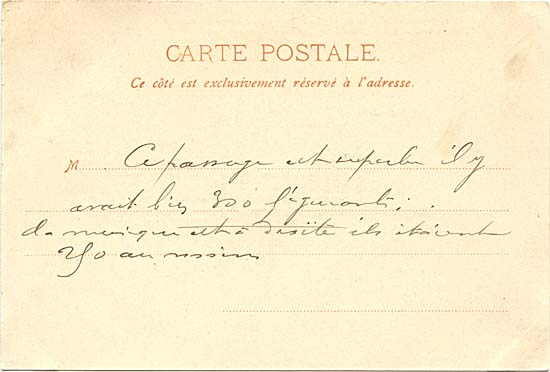 CARTE POSTALE.
Ce côté est exclusivement réservé à l'adresse.
M Ce passage est superbe il y
avait bien 300
la musique est à droite ils étaient
250 au moins